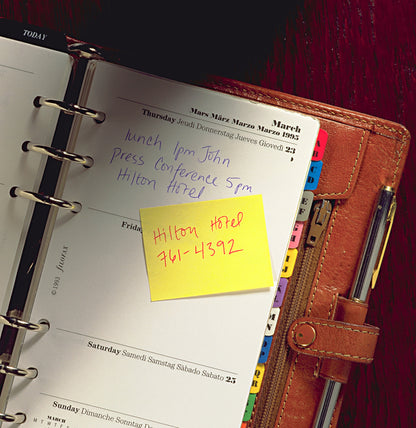 TODAY
March
Mars März Marzo Marzo 1995
Thursday Jeudi Donnerstag Jueves Giovedì 23
lunch 1pm John
Press Conference 5pm
Hilton Hotel
Frida
Hilton Hotel
761-4392
© 1993 filofax
Saturday Samedi Samstag Sábado Sabato 25
Sunday Dimanche Sonntag Do
MARCH
M T W T F